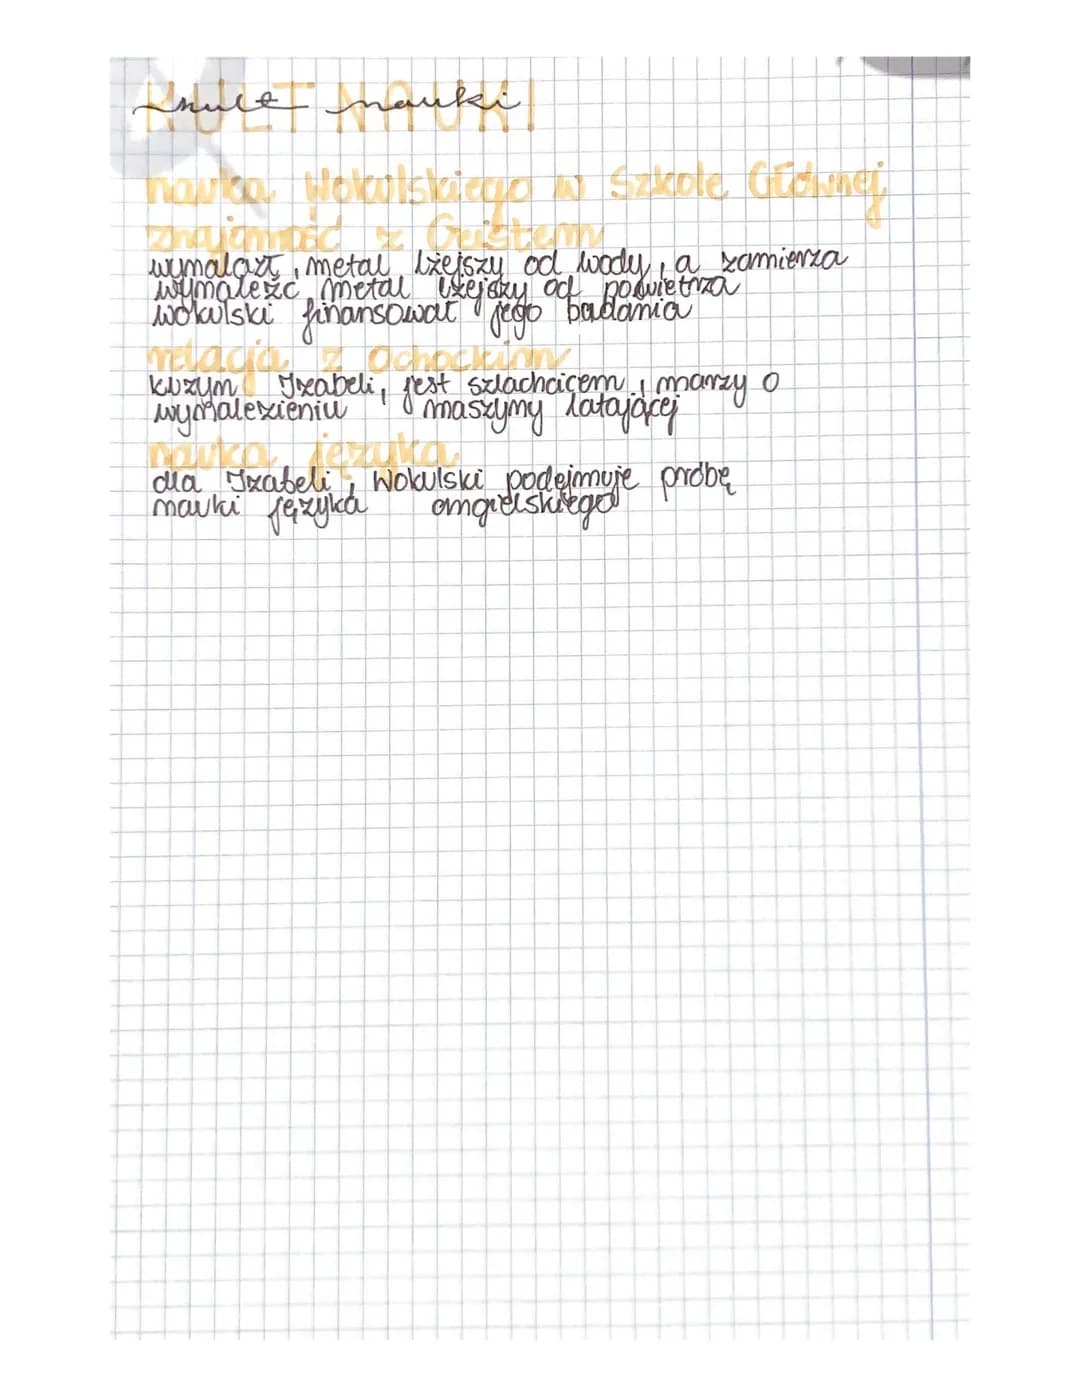 KULT NAUKI
kult nauki
nauka Wokulskiego w Szkole Głównej
znajomość z Geistem
wynalazł metal lżejszy od wody, a zamierza
wynaleźć metal lżejszy od powietrza
Wokulski finansował jego badania
relacja z Ochockim
kuzyn Izabeli, jest szlachcicem, marzy o
wynalezieniu maszyny latającej
nauka języka
dla Izabeli, Wokulski podejmuje próbę
nauki języka angielskiego